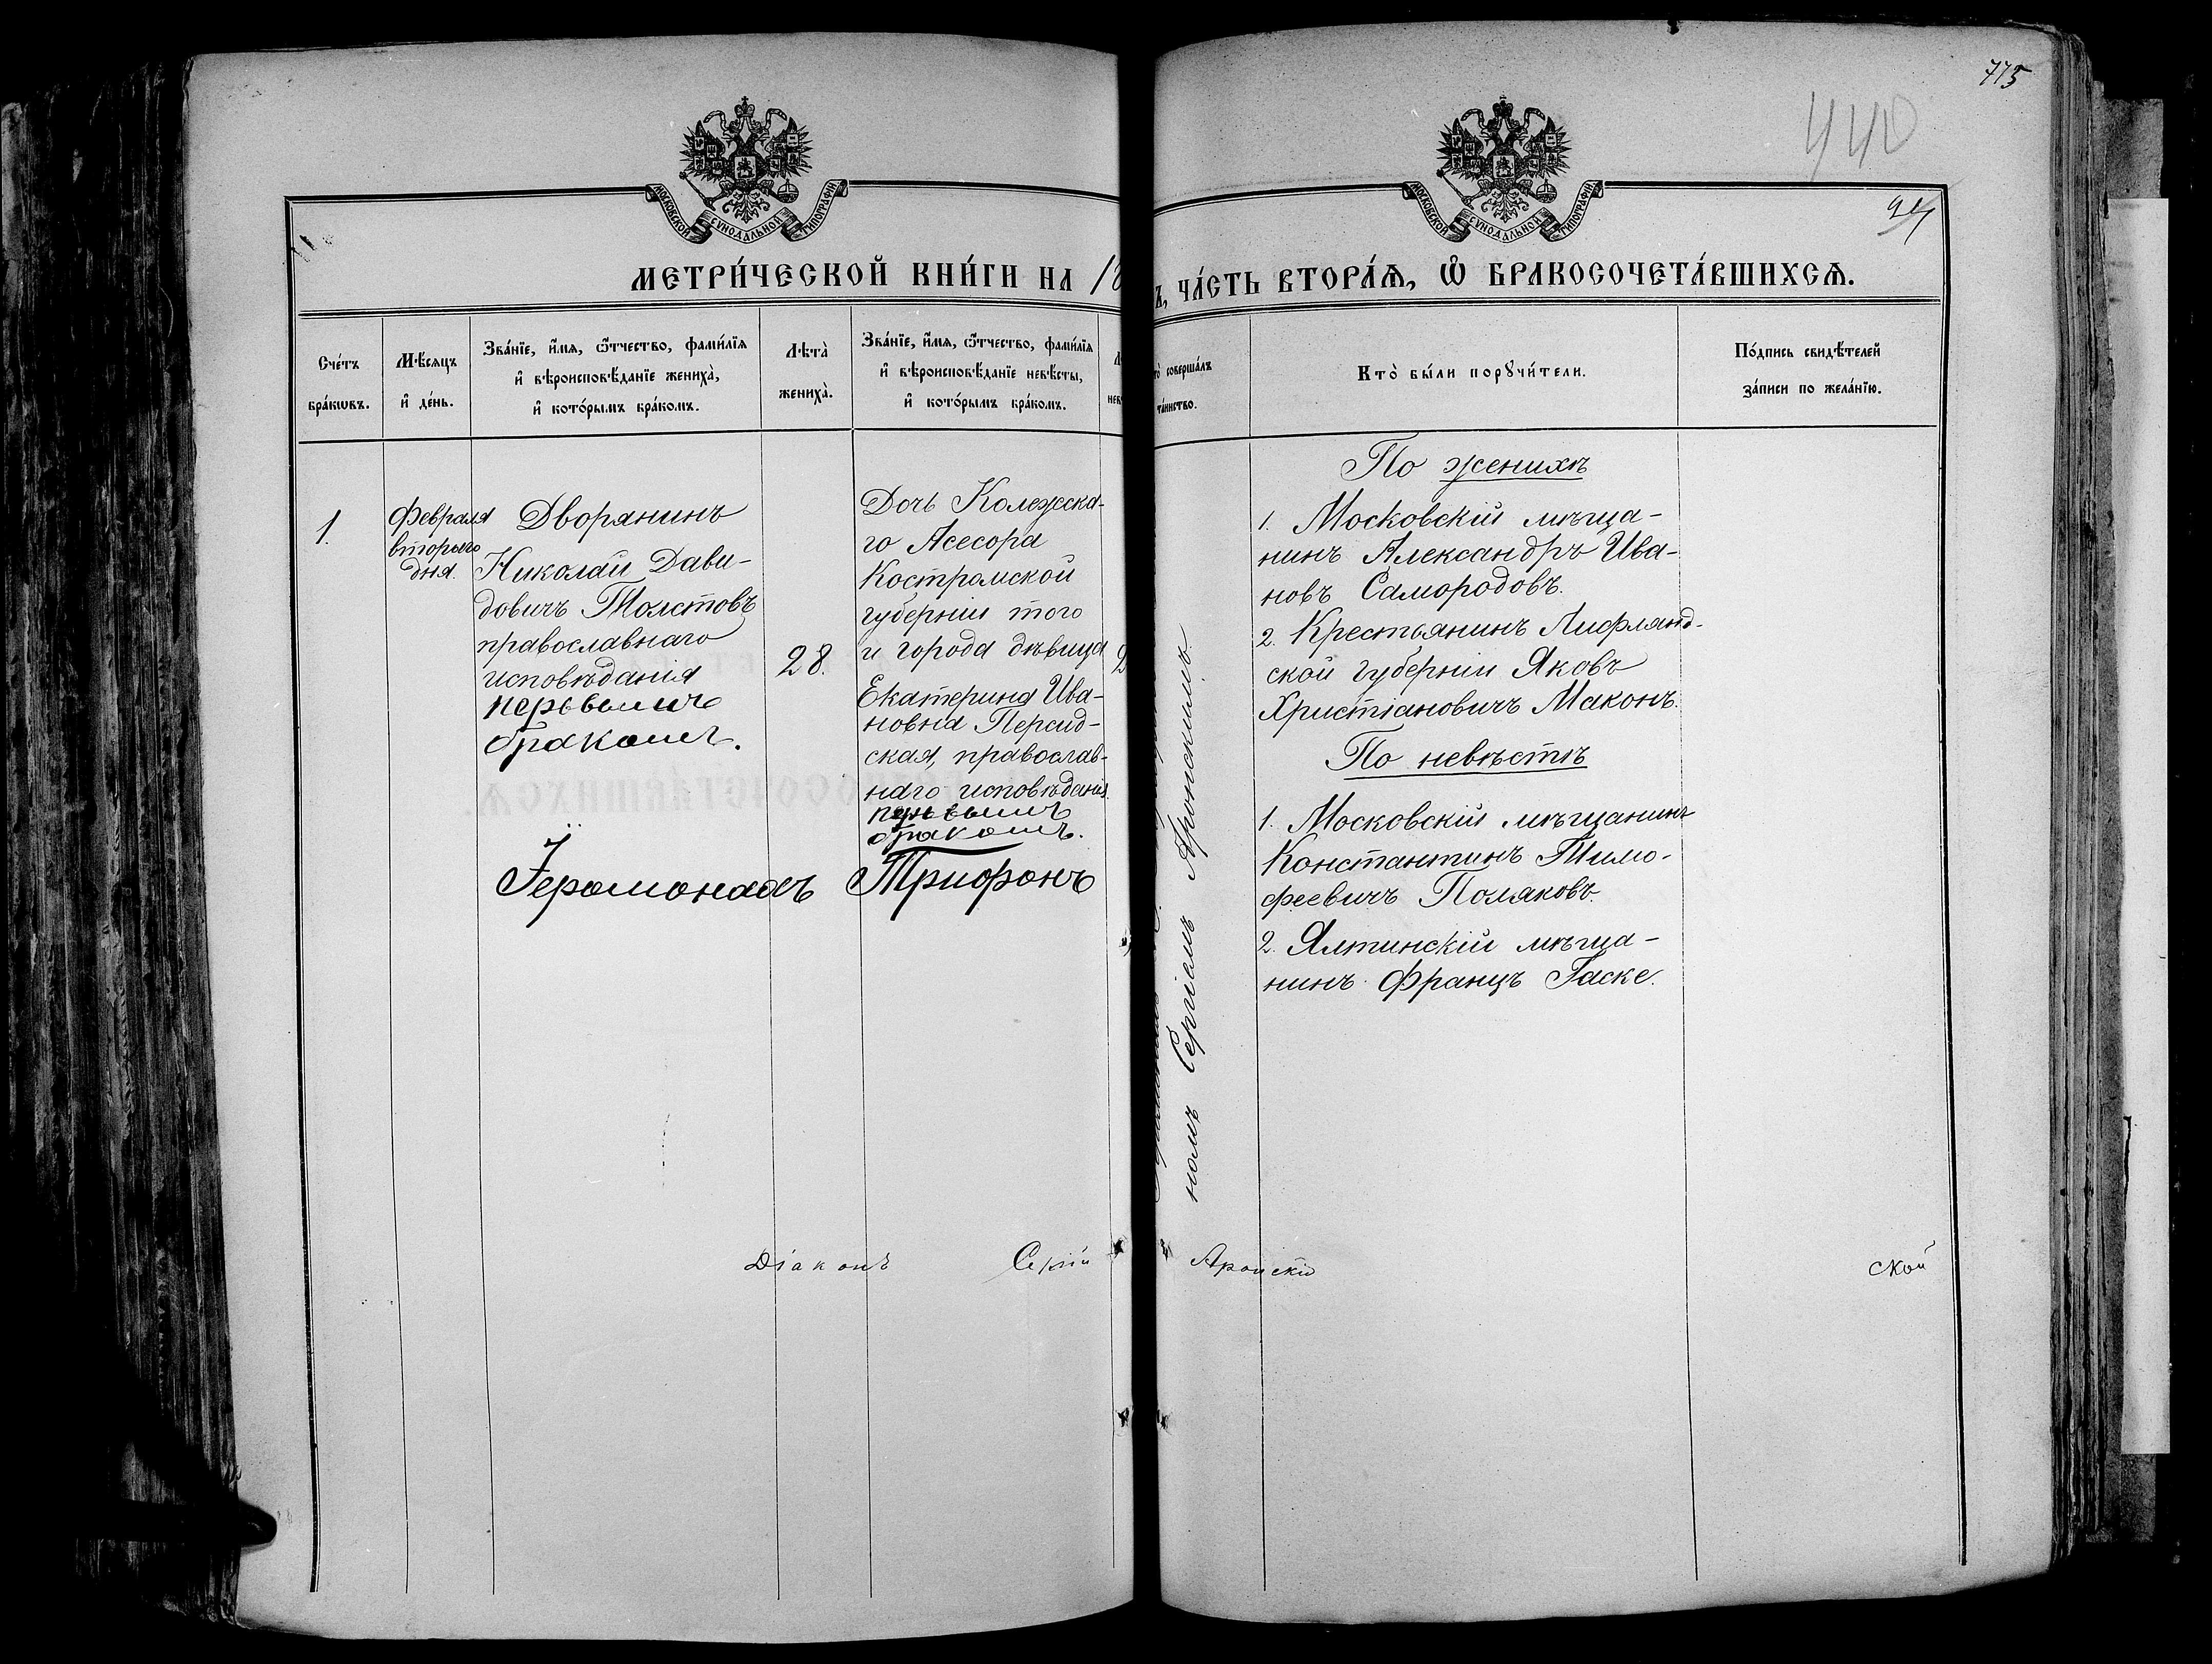 775
440
МОСКОВСКОЙ СѴНОДАЛЬНОЙ ТИПОГРАФІИ
МОСКОВСКОЙ СѴНОДАЛЬНОЙ ТИПОГРАФІИ
МЕТРИ́ЧЕСКОЙ КНИ́ГИ НА 18
Ъ, ЧА́СТЬ ВТОРА́Ѧ, Ѽ БРАКОСОЧЕТА́ВШИХСѦ.
Сче́тъ
бра́кѡвъ.
Мѣ́сяцъ
и҆ де́нь.
Зва́нїе, и҆́мѧ, ѻ҆́тчество, фами́лїѧ
и҆ вѣроисповѣ́данїе жениха̀,
и҆ кото́рымъ бра́комъ.
Лѣта̀
жениха̀.
Зва́нїе, и҆́мѧ, ѻ҆́тчество, фами́лїѧ
и҆ вѣроисповѣ́данїе невѣ́сты,
и҆ кото́рымъ бра́комъ.
то̀ соверша́лъ
та́инство.
Кто̀ бы́ли порꙋчи́тели.
По́дпись свидѣ́телей
за́писи по жела́нїю.
1.
Февраля
второго
дня.
Дворянинъ
Николай Дави-
довичъ Толстовъ
православнаго
исповѣданія
первымъ
бракомъ.
28.
Дочь Колежска-
го Асесора
Костромской
губерніи того
и города дѣвица
Екатерина Ива-
новна Персид-
ская, православ-
наго исповѣданія
первымъ
бракомъ.
2
Іеромонахъ Трифонъ
номъ Сергіемъ Аронскимъ.
По женихѣ
1. Московскій мѣща-
нинъ Александръ Ива-
новъ Самородовъ.
2. Крестьянинъ Лифлянд-
ской губерніи Яковъ
Христіановичъ Маконъ.
По невѣстѣ
1. Московскій мѣщанинъ
Константинъ Тимо-
феевичъ Поляковъ.
2. Ялтинскій мѣща-
нинъ Францъ Гаске.
Діаконъ Сергій Аронскій
ской